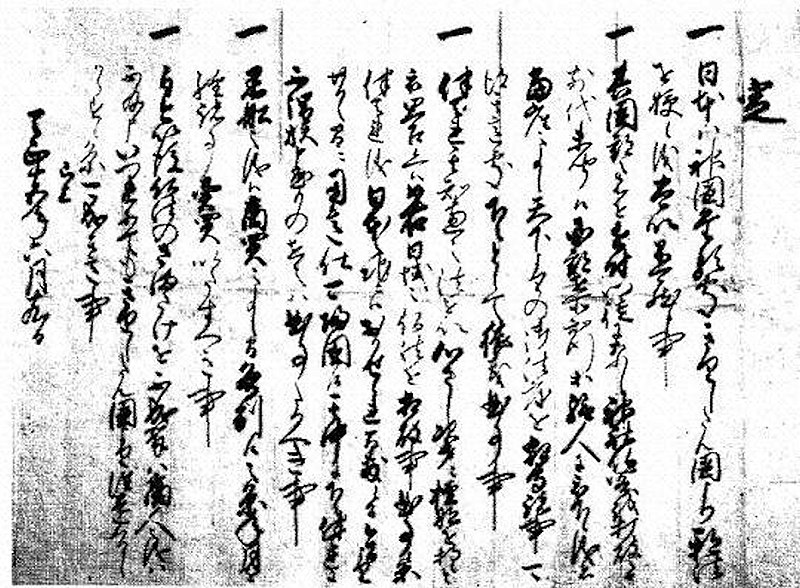 定
一 日本ハ神国たる処きりしたん国より邪法
を授候儀太以不可然候事
一 其国郡之者を近付門徒になし神社仏閣を打破之由
前代未聞候国郡在所知行等給人に被下候儀者
当座之事候天下よりの御法度を相守諸事可
得其意処下々として猥義曲事事
一 伴天連其知恵之法を以心さし次第ニ檀那を持候
と被思召候ヘハ如右日域之仏法を相破事曲事候条
伴天連儀日本之地ニハおかせられ間敷候間今日より
廿日之間ニ用意仕可帰国候其中に下々伴天連に
不謂族申懸もの在之ハ曲事たるへき事
一 黒船之儀ハ商買之事候間各別候之条年月を
経諸事売買いたすへき事
一 自今以後仏法のさまたけを不成輩ハ商人之儀ハ
不及申いつれにてもきりしたん国より往還くるし
からす候条可成其意事
已上
天正十五年六月十九日